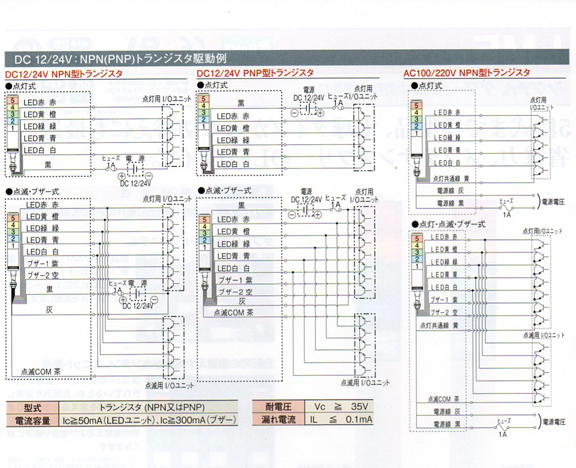 DC 12/24V：NPN(PNP)トランジスタ駆動例
DC12/24V NPN型トランジスタ
●点灯式
5
4
3
2
1
LED赤 赤
LED黄 橙
LED緑 緑
LED青 青
LED白 白
黒
点灯用 I/Oユニット
ヒューズ
1A
電 源
DC 12/24V
●点滅・ブザー式
5
4
3
2
1
LED赤 赤
LED黄 橙
LED緑 緑
LED青 青
LED白 白
ブザー1 紫
ブザー2 空
黒
灰
点滅COM 茶
点灯用 I/Oユニット
ヒューズ
1A
電 源
DC 12/24V
点滅用 I/Oユニット
DC12/24V PNP型トランジスタ
●点灯式
5
4
3
2
1
黒
LED赤 赤
LED黄 橙
LED緑 緑
LED青 青
LED白 白
電源
DC 12/24V
ヒューズ
1A
点灯用
I/Oユニット
●点滅・ブザー式
5
4
3
2
1
黒
LED赤 赤
LED黄 橙
LED緑 緑
LED青 青
LED白 白
ブザー1 紫
ブザー2 空
灰
点滅COM 茶
電源
DC 12/24V
ヒューズ
1A
点灯用
I/Oユニット
点滅用 I/Oユニット
AC100/220V NPN型トランジスタ
●点灯式
5
4
3
2
1
LED赤 赤
LED黄 黄
LED緑 緑
LED青 青
LED白 白
点灯共通線 黄
電源線 灰
電源線 黒
点灯用
I/Oユニット
ヒューズ
1A
電源電圧
●点灯・点滅・ブザー式
5
4
3
2
1
LED赤 赤
LED黄 橙
LED緑 緑
LED青 青
LED白 白
ブザー1 紫
ブザー2 空
点灯共通線 黄
点滅COM 茶
電源線 灰
電源線 黒
点灯用I/Oユニット
点滅用 I/Oユニット
ヒューズ
1A
電源電圧
型式 トランジスタ (NPN又はPNP)
電流容量 Ic≧50mA（LEDユニット）、Ic≧300mA（ブザー）
耐電圧 Vc ≧ 35V
漏れ電流 IL ≦ 0.1mA